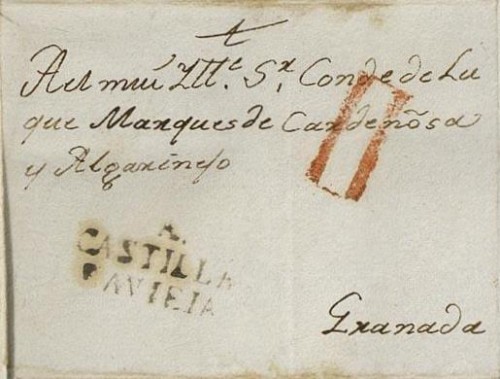 Ael mui Ill.e S.r Conde de Lu
que Marques de Cardeñosa
y Algarinejo
A.
CASTILLA
LA VIEJA
Granada